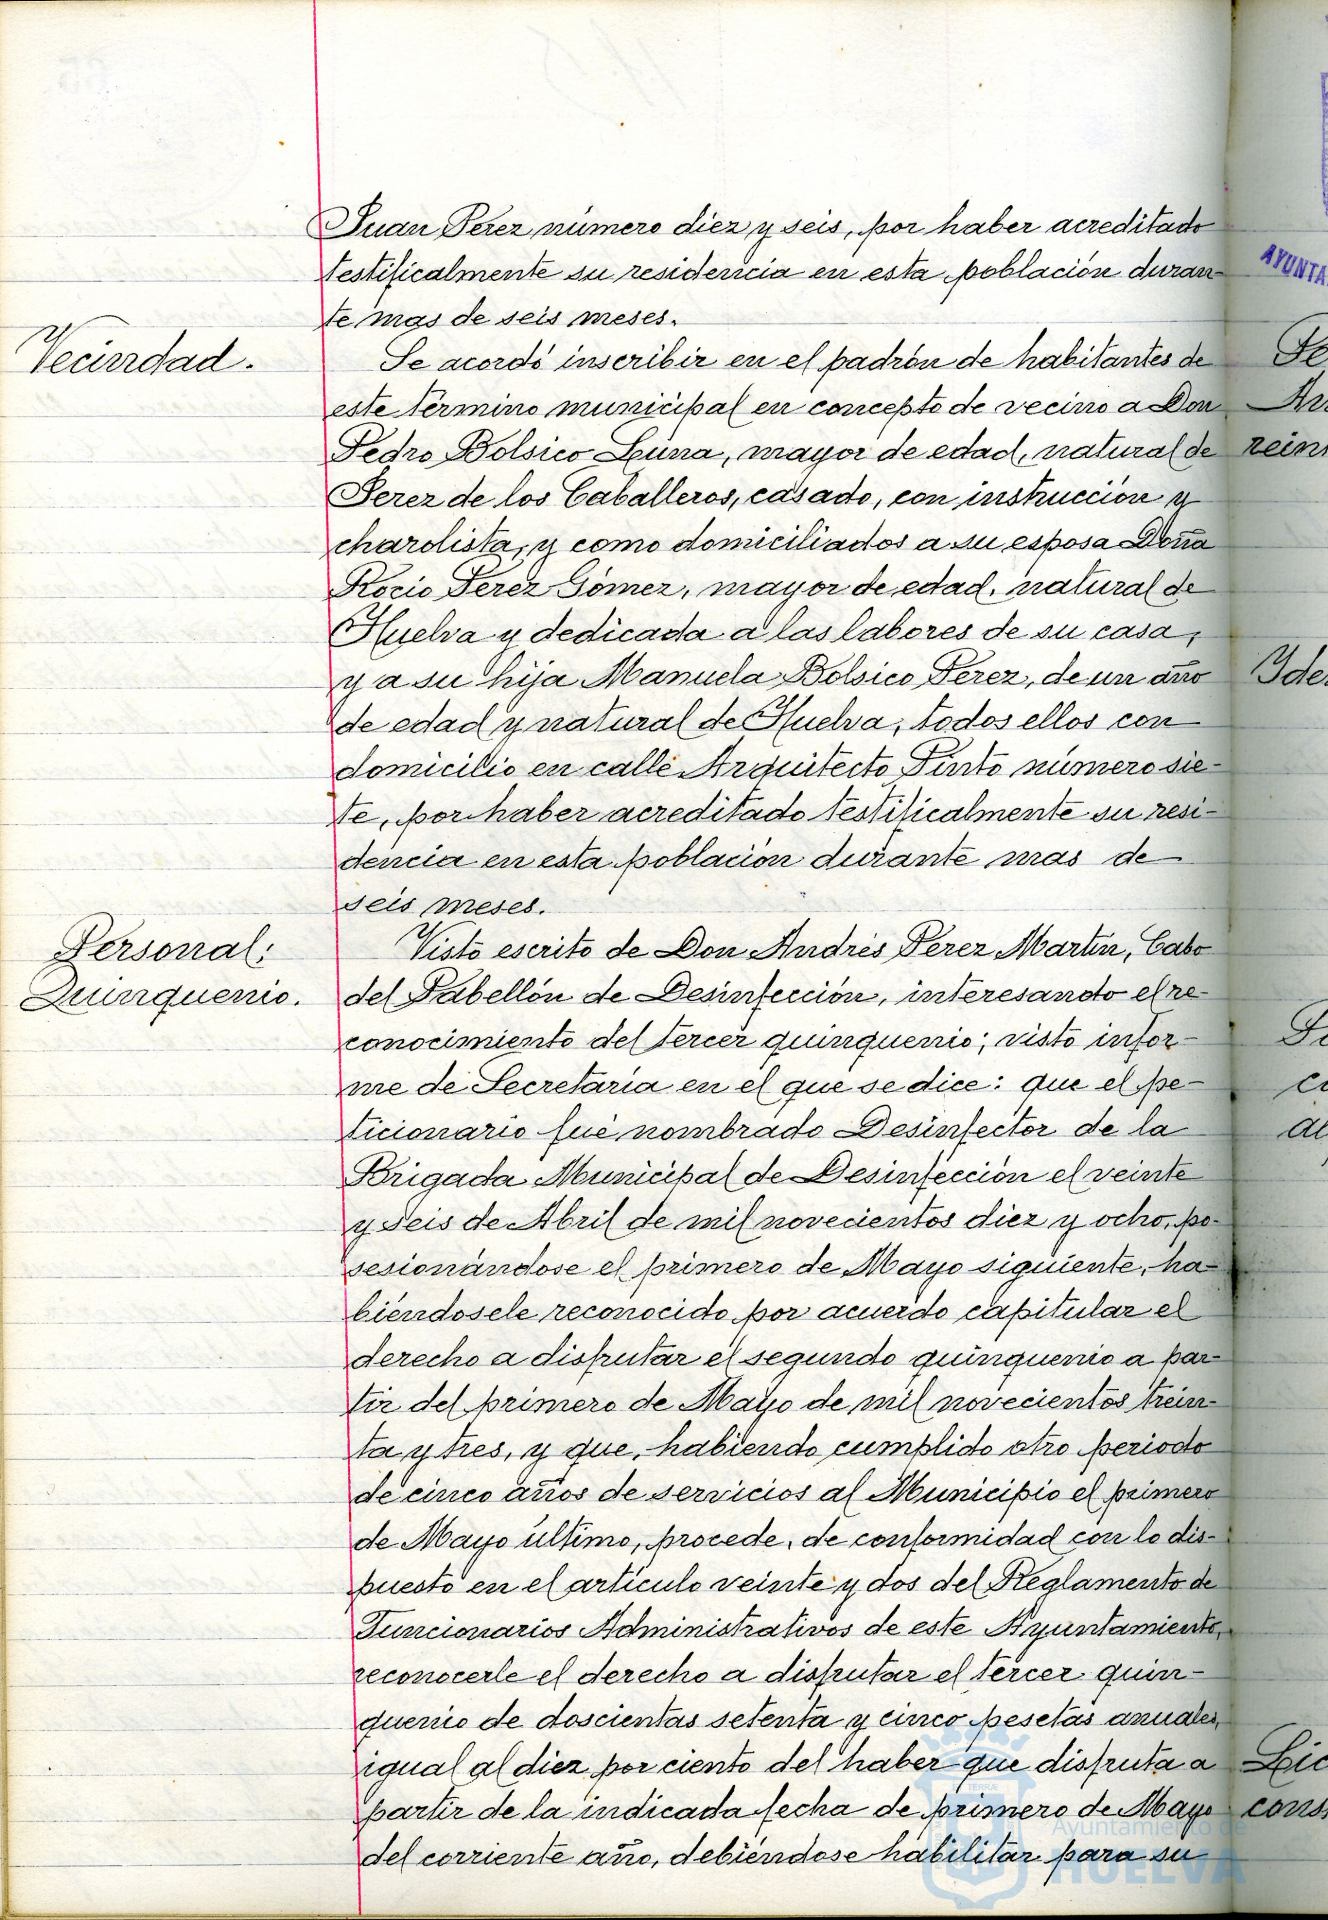 Juan Perez número diez y seis, por haber acreditado
testificalmente su residencia en esta población duran-
te mas de seis meses.
Vecindad.
Se acordó inscribir en el padrón de habitantes de
este término municipal en concepto de vecino a Don
Pedro Bolsico Luna, mayor de edad, natural de
Jerez de los Caballeros, casado, con instrucción y
charolista, y como domiciliados a su esposa Doña
Rocio Perez Gómez, mayor de edad, natural de
Huelva y dedicada a las labores de su casa,
y a su hija Manuela Bolsico Perez, de un año
de edad y natural de Huelva, todos ellos con
domicilio en calle Arquitecto Pinto número sie-
te, por haber acreditado testificalmente su resi-
dencia en esta población durante mas de
seis meses.
Personal:
Quinquenio.
Visto escrito de Don Andrés Perez Martín, Cabo
del Pabellón de Desinfección, interesando el re-
conocimiento del tercer quinquenio; visto infor-
me de Secretaría en el que se dice: que el pe-
ticionario fué nombrado Desinfector de la
Brigada Municipal de Desinfección el veinte
y seis de Abril de mil novecientos diez y ocho, po-
sesionándose el primero de Mayo siguiente, ha-
biéndosele reconocido por acuerdo capitular el
derecho a disfrutar el segundo quinquenio a par-
tir del primero de Mayo de mil novecientos trein-
ta y tres, y que, habiendo cumplido otro periodo
de cinco años de servicios al Municipio el primero
de Mayo último, procede, de conformidad con lo dis-
puesto en el artículo veinte y dos del Reglamento de
Funcionarios Administrativos de este Ayuntamiento,
reconocerle el derecho a disfrutar el tercer quin-
quenio de doscientas setenta y cinco pesetas anuales,
igual al diez por ciento del haber que disfruta a
partir de la indicada fecha de primero de Mayo
del corriente año, debiéndose habilitar para su
Ayuntamiento de
HUELVA